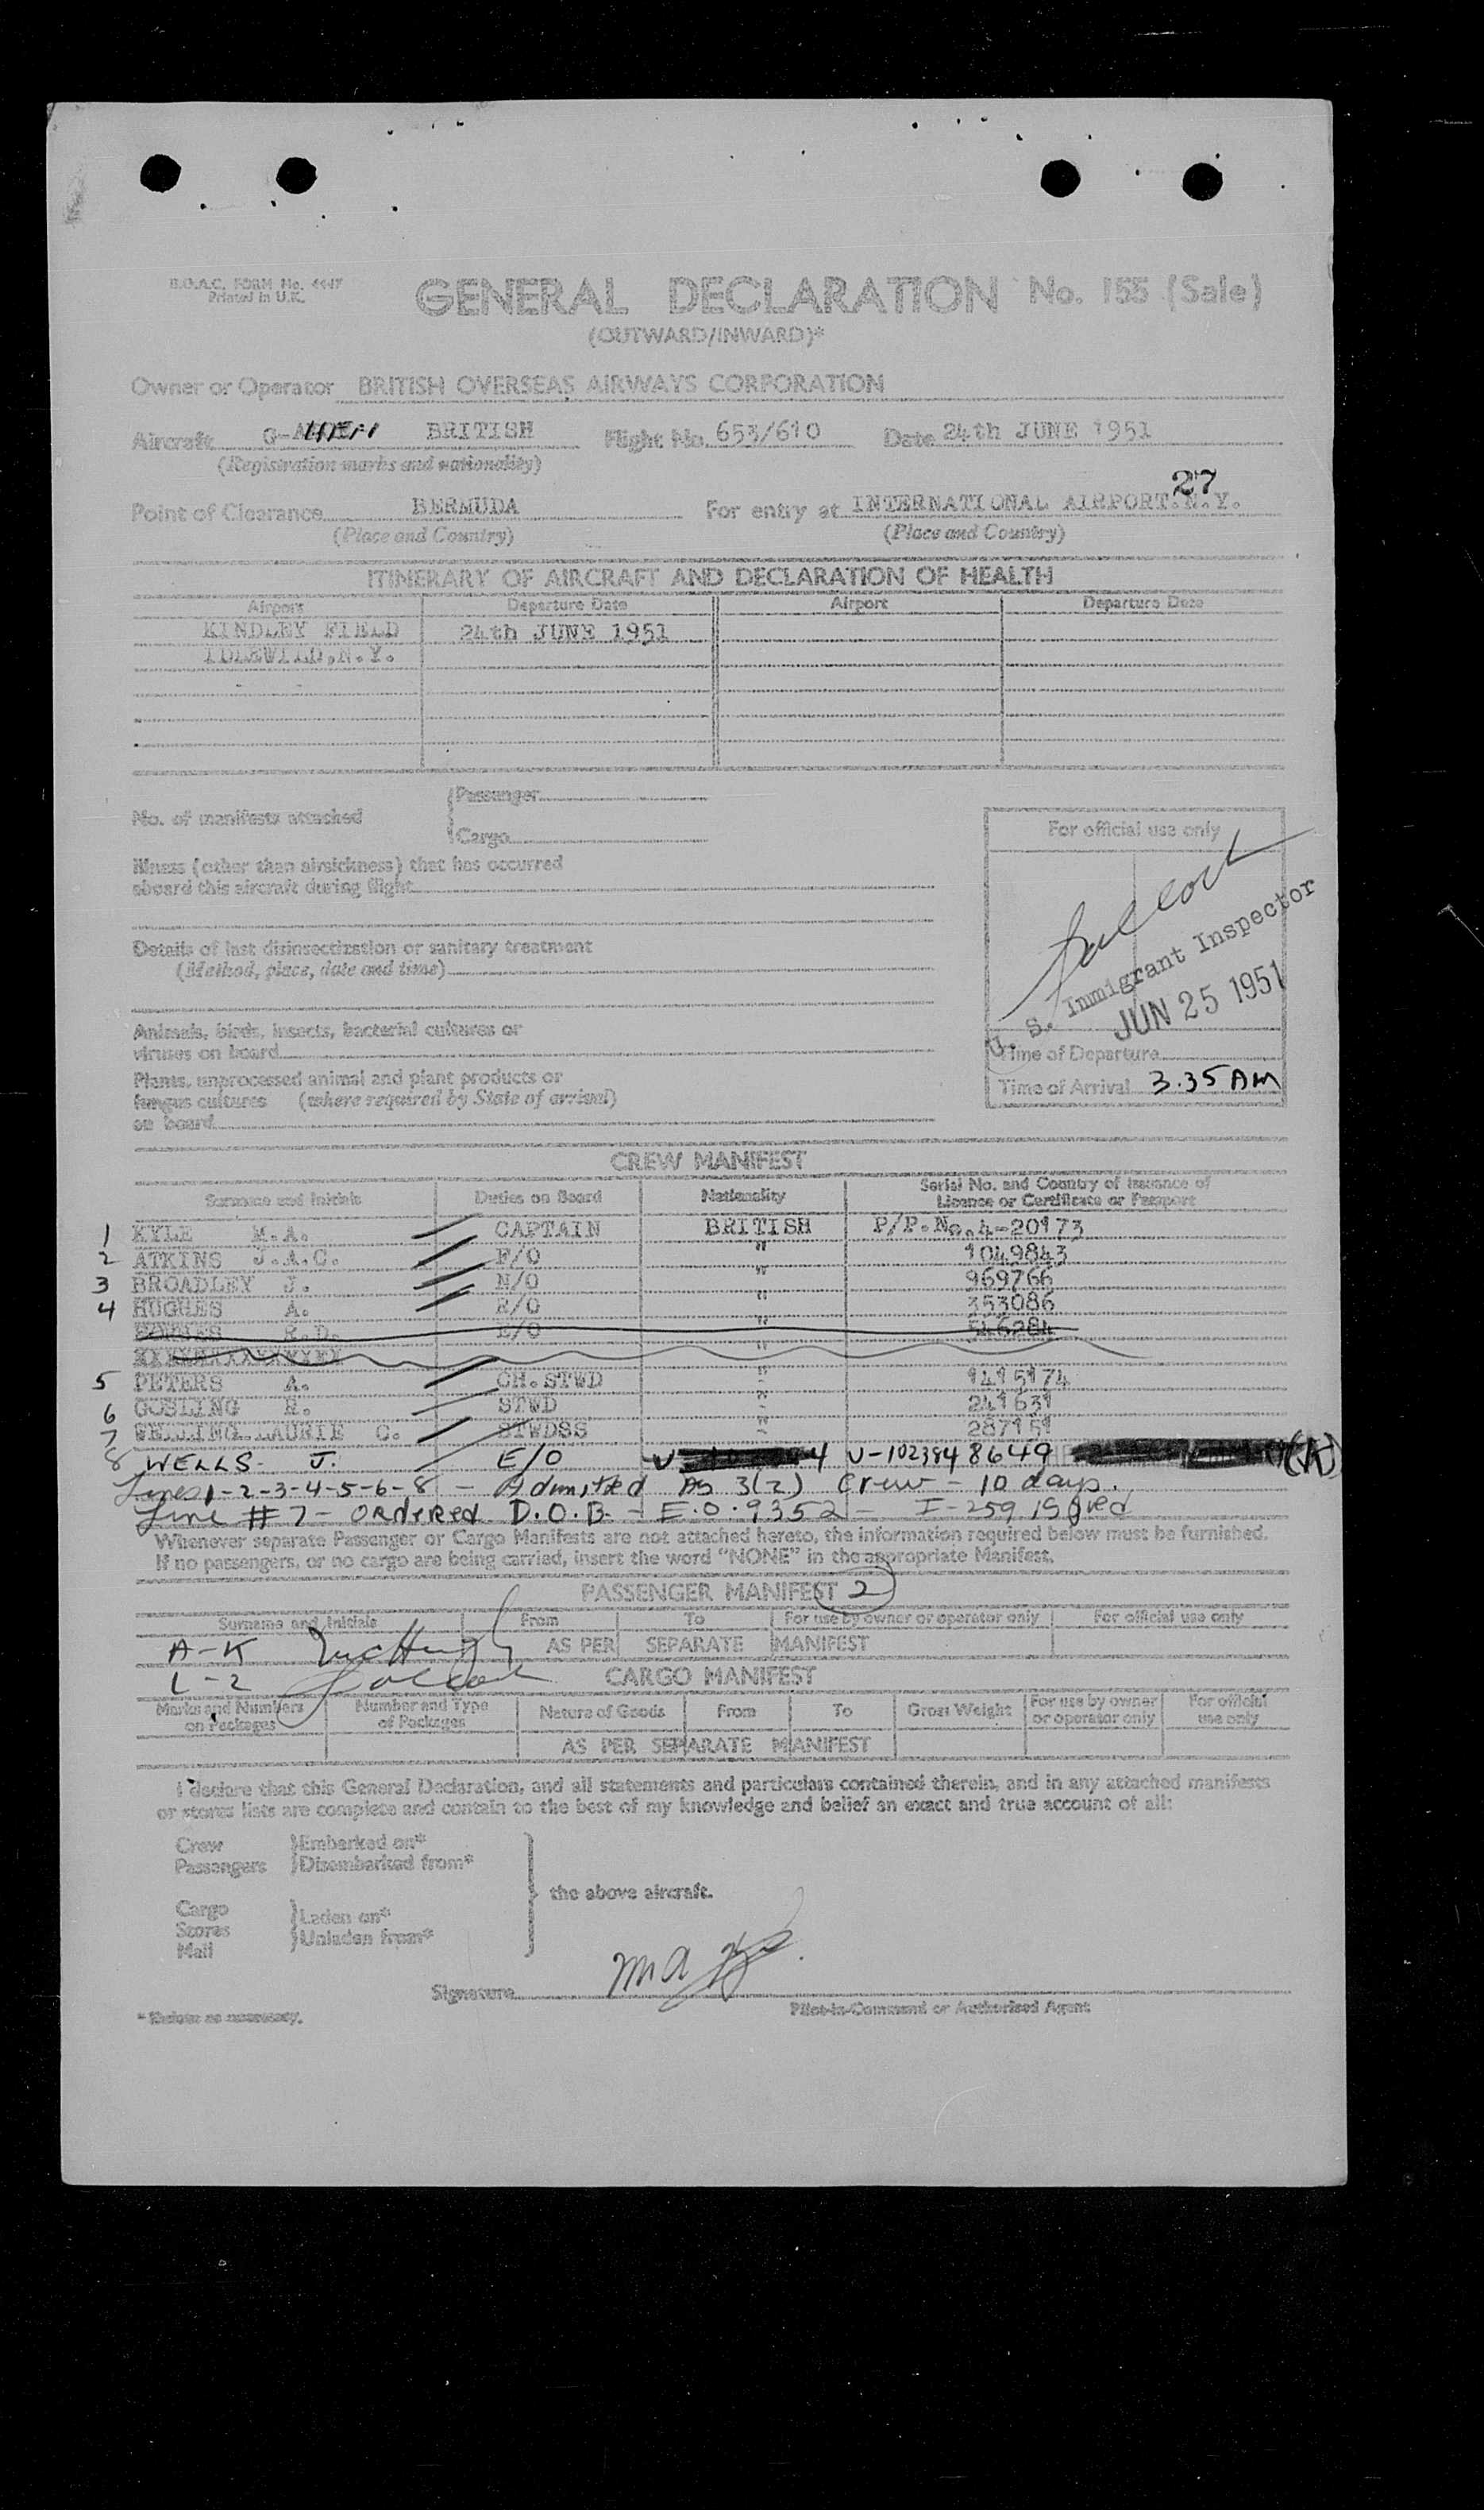 B.O.A.C. FORM No. 4447
Printed in U.K.
GENERAL DECLARATION No. 155 (Sale)
(OUTWARD/INWARD)*
Owner or Operator BRITISH OVERSEAS AIRWAYS CORPORATION
Aircraft G- BRITISH Flight No. 653/610 Date 24th JUNE 1951
(Registration marks and nationality)
27
Point of Clearance BERMUDA For entry at INTERNATIONAL AIRPORT.N.Y.
(Place and Country) (Place and Country)
ITINERARY OF AIRCRAFT AND DECLARATION OF HEALTH
Airport Departure Date Airport Departure Date
KINDLEY FIELD 24th JUNE 1951
IDLEWILD,N.Y.
No. of manifests attached
Passenger
Cargo
For official use only
Illness (other than airsickness) that has occurred
aboard this aircraft during flight
Details of last disinsectization or sanitary treatment
(Method, place, date and time)
U. S. Immigrant Inspector
JUN 25 1951
Animals, birds, insects, bacterial cultures or
viruses on board
Time of Departure
Plants, unprocessed animal and plant products or
fungus cultures (where required by State of arrival)
on board
Time of Arrival 3.35 AM
CREW MANIFEST
Surname and Initials Duties on Board Nationality Serial No. and Country of Issuance of
Licence or Certificate or Passport
1 KYLE M.A. CAPTAIN BRITISH P/P.No.4-20173
2 ATKINS J.A.C. F/O " 1049843
3 BROADLEY J. N/O " 969766
4 HUGHES A. R/O " 353086
R.D. E/O " 546284
5 PETERS A. CH.STWD " 1415174
6 GOSLING R. STWD " 241631
7 LAURIE C. STWDSS " 287151
8 WELLS. J. E/O V-1023948649
Lines 1-2-3-4-5-6-8 - Admitted As 3(2) Crew - 10 days.
Line #7 - ordered D.O.B. - E.O. 9352 - I-259 issued
Whenever separate Passenger or Cargo Manifests are not attached hereto, the information required below must be furnished.
If no passengers, or no cargo are being carried, insert the word "NONE" in the appropriate Manifest.
PASSENGER MANIFEST 2
Surname and Initials From To For use by owner or operator only For official use only
A-K AS PER SEPARATE MANIFEST
L-Z
CARGO MANIFEST
Marks and Numbers on Packages Number and Type of Packages Nature of Goods From To Gross Weight For use by owner or operator only For official use only
AS PER SEPARATE MANIFEST
I declare that this General Declaration, and all statements and particulars contained therein, and in any attached manifests
or stores lists are complete and contain to the best of my knowledge and belief an exact and true account of all:
Crew Embarked on*
Passengers Disembarked from*
the above aircraft.
Cargo
Stores Laden on*
Mail Unladen from*
Signature
Pilot-in-Command or Authorised Agent
* Delete as necessary.